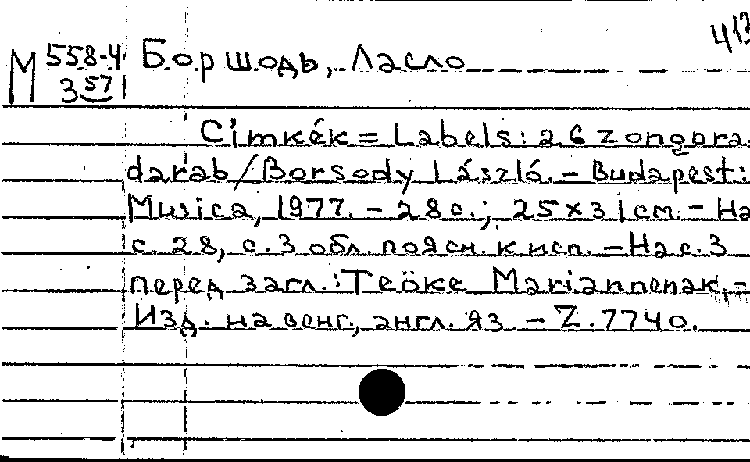 413
М 558-4 Боршодь, Ласло
3 57
Címkék = Labels: 26 zongora
darab / Borsody László. – Budapest:
Musica, 1977. – 28 с.; 25×31 см. – На
с. 28, с. 3 обл. поясн. к исп. – На с. 3
перед загл.: Teöke Mariannenak. –
Изд. на венг., англ. яз. – Z. 7740.